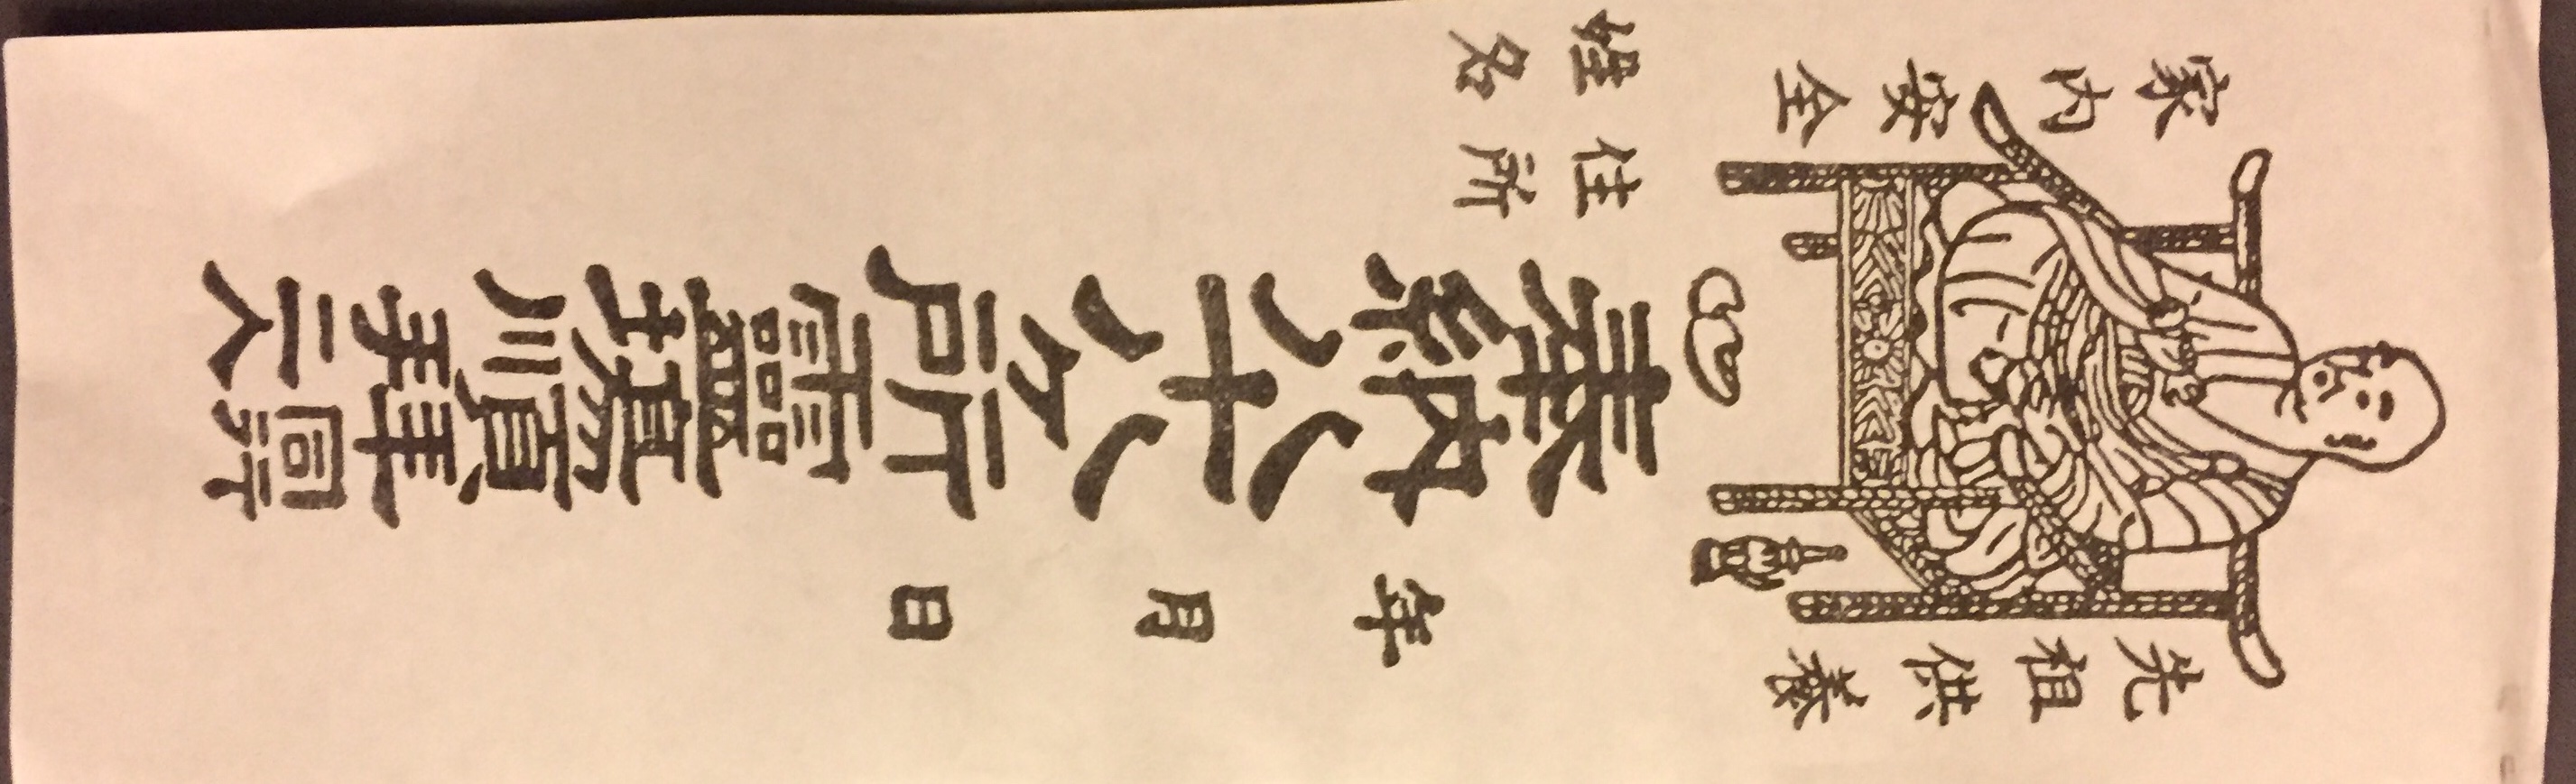 先祖供養
年 月 日
奉納八十八ヶ所靈場順拜
同行
二人
家内安全
住所
姓名